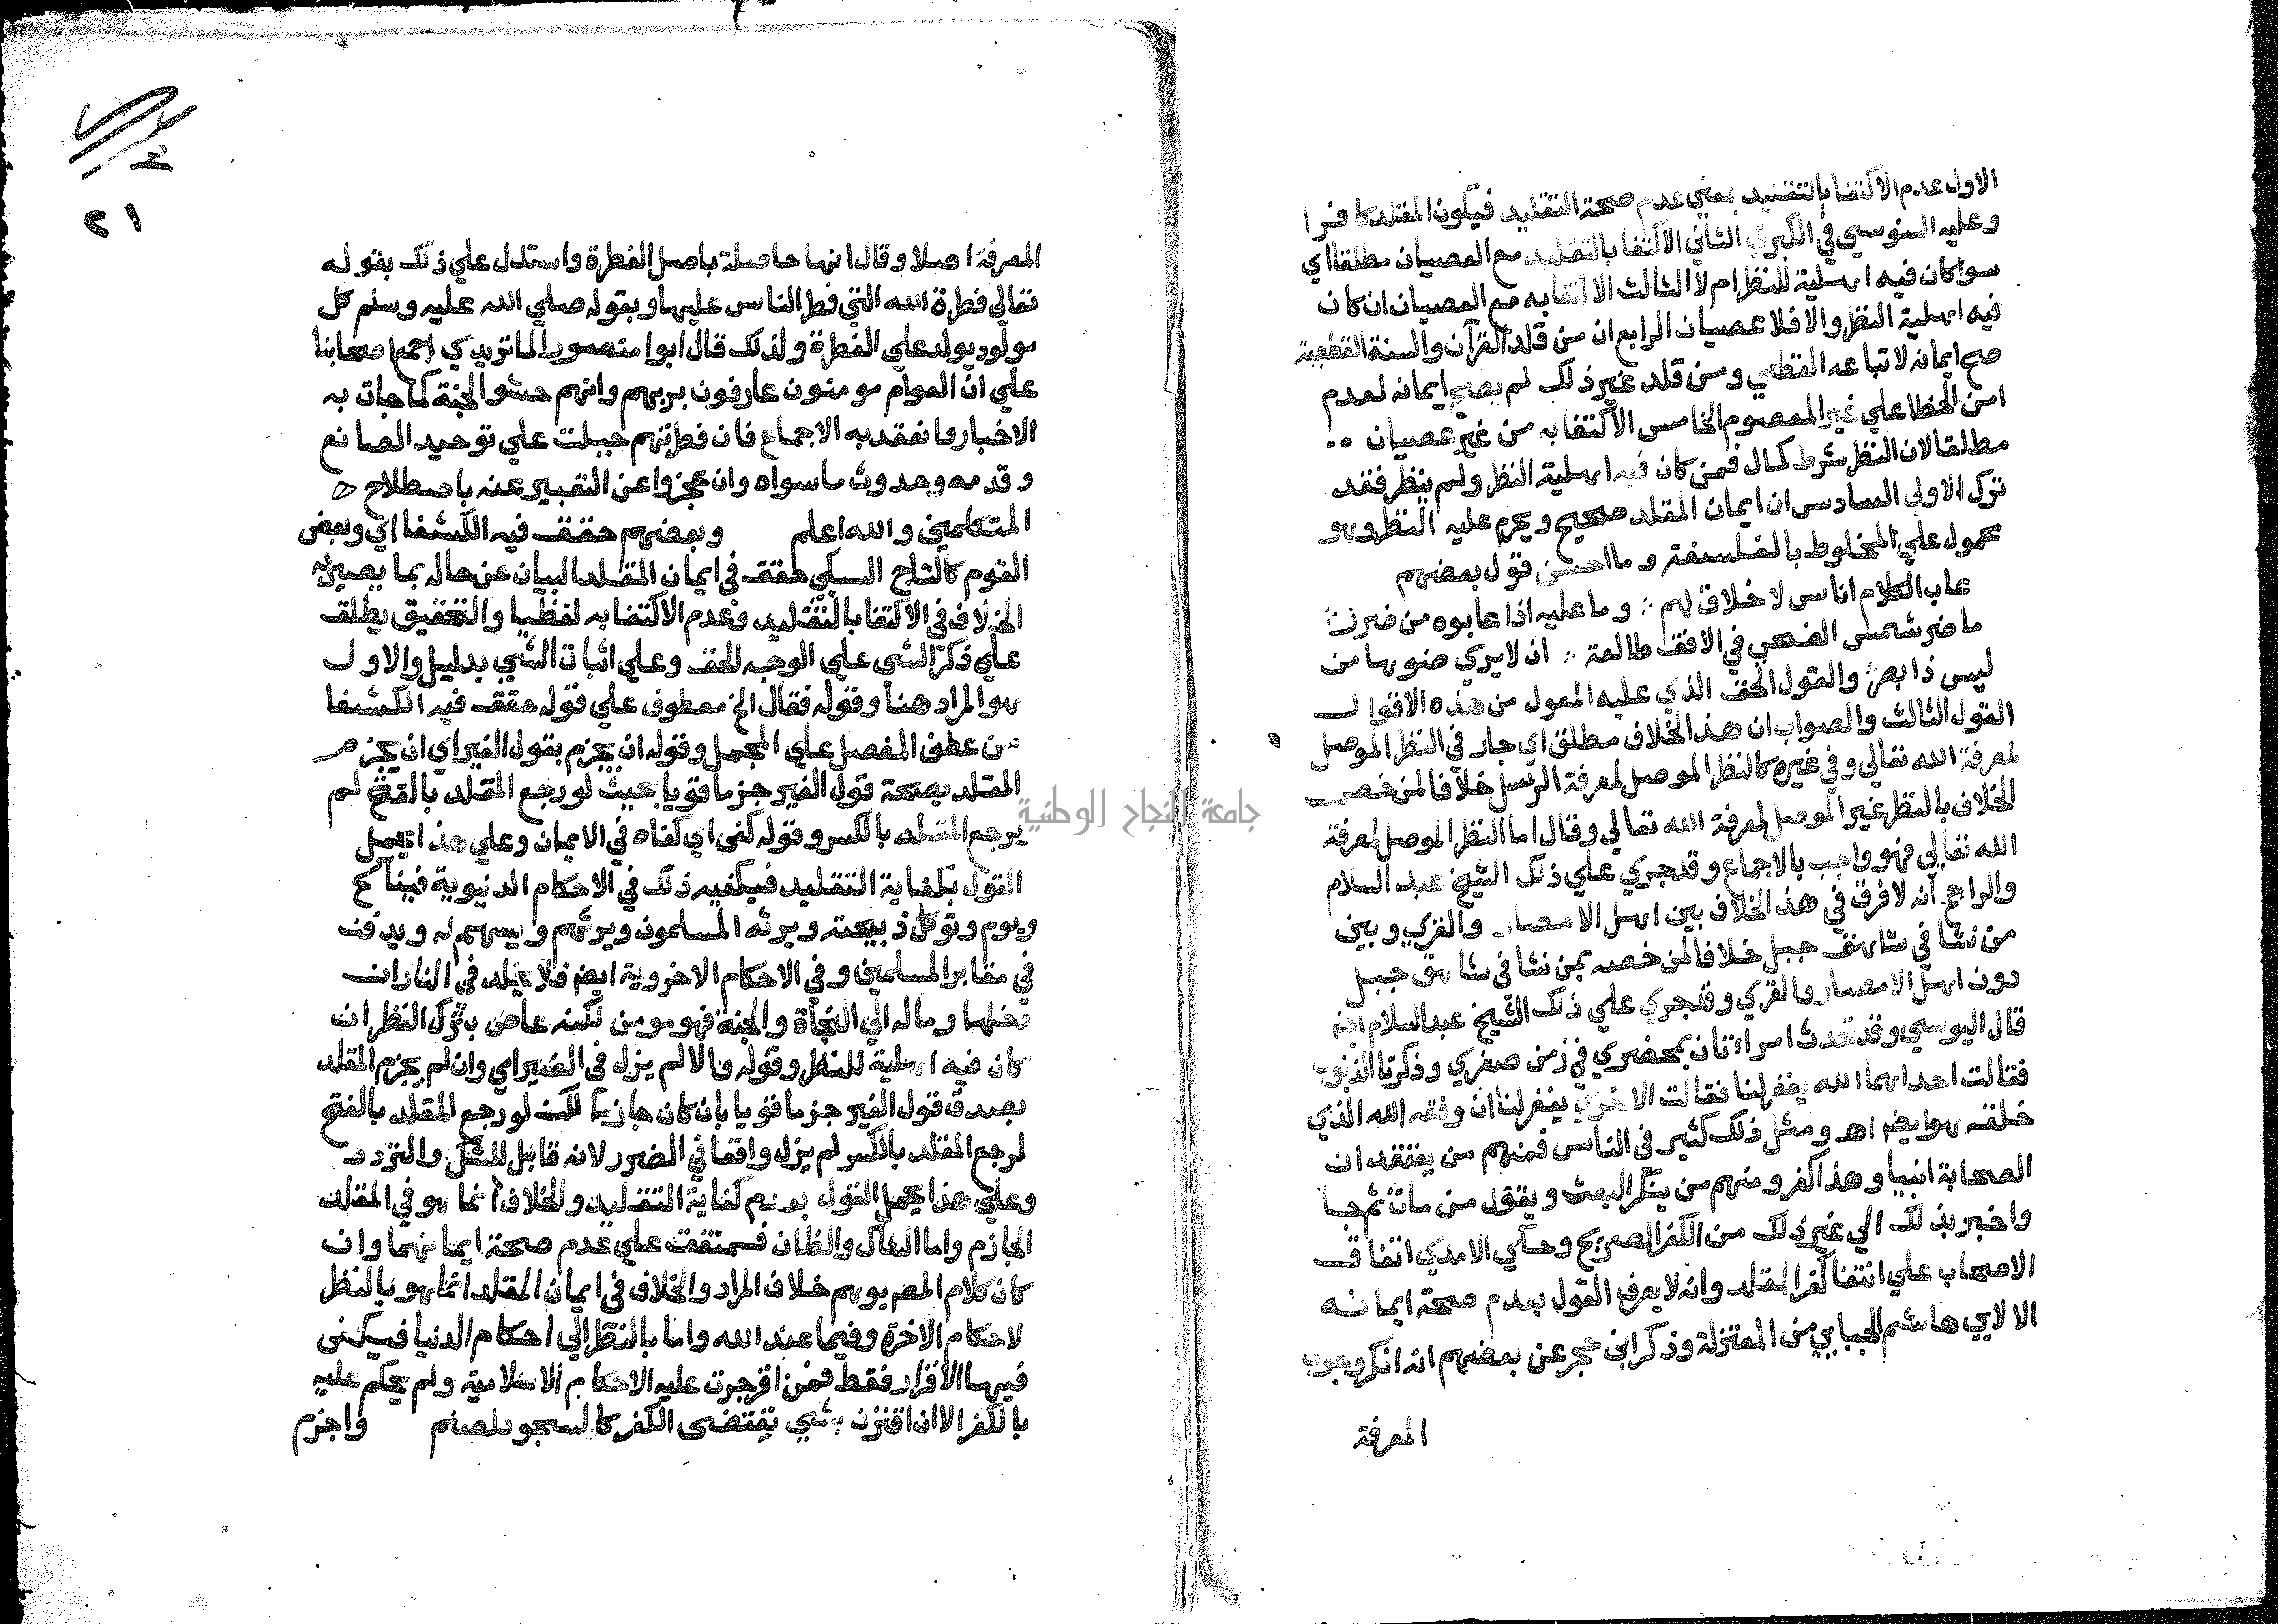 الاول عدم الاكتفا بالتقليد بمعني عدم صحة التقليد فيكون المقلد كافرا
وعليه السنوسي في الكبري الثاني الاكتفا بالتقليد مع العصيان مطلقا اي
سوا كان فيه اهلية للنظر ام لا الثالث الاكتفا به مع العصيان ان كان
فيه اهلية النظر والا فلا عصيان الرابع ان من قلد القرآن والسنة القطعية
صح ايمانه لاتباعه القطعي ومن قلد غير ذلك لم يصح ايمانه لعدم
امن الخطا علي غير المعصوم الخامس الاكتفا به من غير عصيان
مطلقا لان النظر شرط كمال فمن كان فيه اهلية النظر ولم ينظر فقد
ترك الاولي السادس ان ايمان المقلد صحيح ويحرم عليه النظر وهو
محمول علي المخلوط بالفلسفة وما احسن قول بعضهم
عاب الكلام اناس لا خلاق لهم ؞ وما عليه اذا عابوه من ضرر
ما ضر شمس الضحي في الافق طالعة ؞ ان لا يري ضوءها من
ليس ذا بصر والقول الحق الذي عليه المعول من هذه الاقوال
القول الثالث والصواب ان هذا الخلاف مطلق اي جار في النظر الموصل
لمعرفة الله تعالي وفي غيره كالنظر الموصل لمعرفة الرسل خلافا لمن خص
الخلاف بالنظر غير الموصل لمعرفة الله تعالي وقال اما النظر الموصل لمعرفة
الله تعالي فهو واجب بالاجماع وقد جري علي ذلك الشيخ عبد السلام
والراجح انه لا فرق في هذا الخلاف بين اهل الامصار والقري وبين
من نشا في شاهق جبل خلافا لمن خصه بمن نشا في شاهق جبل
دون اهل الامصار والقري وقد جري علي ذلك الشيخ عبد السلام ايضا
قال اليوسي وقد تحدث امراتان بمحضري في زمن صغري وذكرتا الذنوب
فقالت احداهما الله يغفر لنا فقالت الاخري يغفر لنا ان وفقه الله الذي
خلقه هو ايضا اهـ ومثل ذلك كثير في الناس فمنهم من يعتقد ان
الصحابة انبيا وهذا كفر ومنهم من ينكر البعث ويقول من مات ثم جا
واخبر بذلك الي غير ذلك من الكفر الصريح وحكي الامدي اتفاق
الاصحاب علي انتفا كفر المقلد وانه لا يعرف القول بعدم صحة ايمانه
الا لابي هاشم الجبايي من المعتزلة وذكر ابن حجر عن بعضهم انه انكر وجوب
المعرفة
٢١
المعرفة اصلا وقال انها حاصلة باصل الفطرة واستدل علي ذلك بقوله
تعالي فطرة الله التي فطر الناس عليها وبقوله صلي الله عليه وسلم كل
مولود يولد علي الفطرة ولذلك قال ابوا منصور الماتريدي اجمع اصحابنا
علي ان العوام مومنون عارفون بربهم وانهم حشو الجنة كما جات به
الاخبار وانعقد به الاجماع فان فطرتهم جبلت علي توحيد الصانع
وقدمه وحدوث ما سواه وان عجزوا عن التعبير عنه باصطلاح
المتكلمين والله اعلم وبعضهم حقق فيه الكشفا اي وبعض
القوم كالتاج السبكي حقق في ايمان المقلد البيان عن حاله بما يصير به
الخلاف في الاكتفا بالتقليد وعدم الاكتفا به لفظيا والتحقيق يطلق
علي ذكر الشي علي الوجه الحق وعلي اثبات الشي بدليل والاول
هو المراد هنا وقوله فقال الخ معطوف علي قوله حقق فيه الكشفا
من عطف المفصل علي المجمل وقوله ان يجزم بقول الغير اي ان يجزم
المقلد بصحة قول الغير جزما قويا بحيث لو رجع المقلد بالفتح لم
يرجع المقلد بالكسر وقوله كفي اي كفاه في الايمان وعلي هذا يحمل
القول بكفاية التقليد فيكفيه ذلك في الاحكام الدنيوية فيناكح
ويوم وتوكل ذبيحته ويرثه المسلمون ويرثهم ويسهم له ويدفن
في مقابر المسلمين وفي الاحكام الاخروية ايضا فلا يخلد في النار ان
دخلها وماله الي النجاة والجنة فهو مومن لكنه عاص بترك النظر ان
كان فيه اهلية للنظر وقوله والا لم يزل في الضير اي وان لم يجزم المقلد
بصدق قول الغير جزما قويا بان كان جازما لكن لو رجع المقلد بالفتح
لرجع المقلد بالكسر لم يزل واقعا في الضرر لانه قابل للشك والتردد
وعلي هذا يحمل القول بعدم كفاية التقليد والخلاف انما هو في المقلد
الجازم واما الشاك والظان فمتفق علي عدم صحة ايمانهما وان
كان كلام المص يوهم خلاف المراد والخلاف في ايمان المقلد انما هو بالنظر
لاحكام الاخرة وفيما عند الله واما بالنظر الي احكام الدنيا فيكفي
فيها الاقرار فقط فمن اقر جرت عليه الاحكام الاسلامية ولم يحكم عليه
بالكفر الا ان اقترن بشي يقتضي الكفر كالسجود لصنم واجزم
جامعة النجاح الوطنية